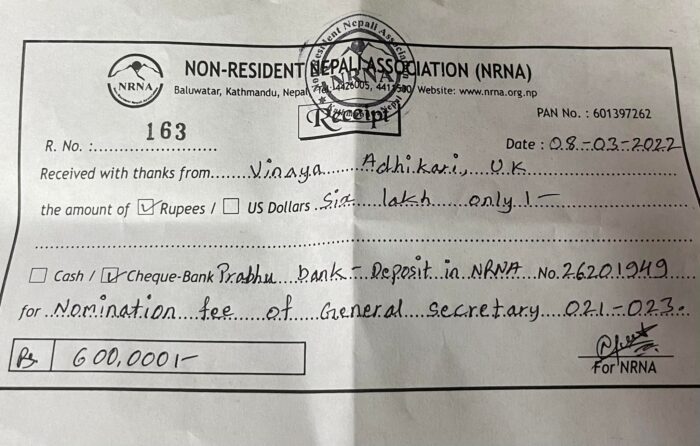 NON-RESIDENT NEPALI ASSOCIATION (NRNA)
NRNA
Baluwatar, Kathmandu, Nepal Tel: 4426005, 4411530 Website: www.nrna.org.np
Receipt
PAN No. : 601397262
R. No. : 163
Date : 08-03-2022
Received with thanks from Vinaya Adhikari, U.K
the amount of ☑ Rupees / ☐ US Dollars Six lakh only 1-
☐ Cash / ☑ Cheque-Bank Prabhu bank - Deposit in NRNA No. 26201949
for Nomination fee of General secretary 021-023.
Rs 600,000/-
For NRNA